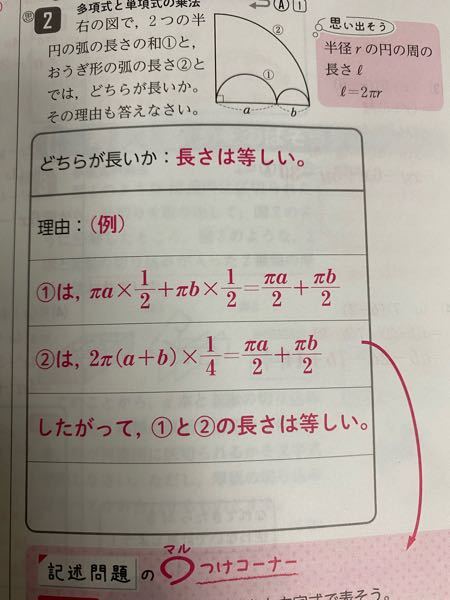 多項式と単項式の乗法
思 2 右の図で，2つの半
円の弧の長さの和①と，
おうぎ形の弧の長さ②と
では，どちらが長いか。
その理由も答えなさい。
A 1
②
①
a b
思い出そう
半径rの円の周の
長さℓ
ℓ=2πr
どちらが長いか：長さは等しい。
理由：（例）
①は，πa×1/2+πb×1/2=πa/2+πb/2
②は，2π(a+b)×1/4=πa/2+πb/2
したがって，①と②の長さは等しい。
マル
記述問題の○つけコーナー
文字式で表そう。